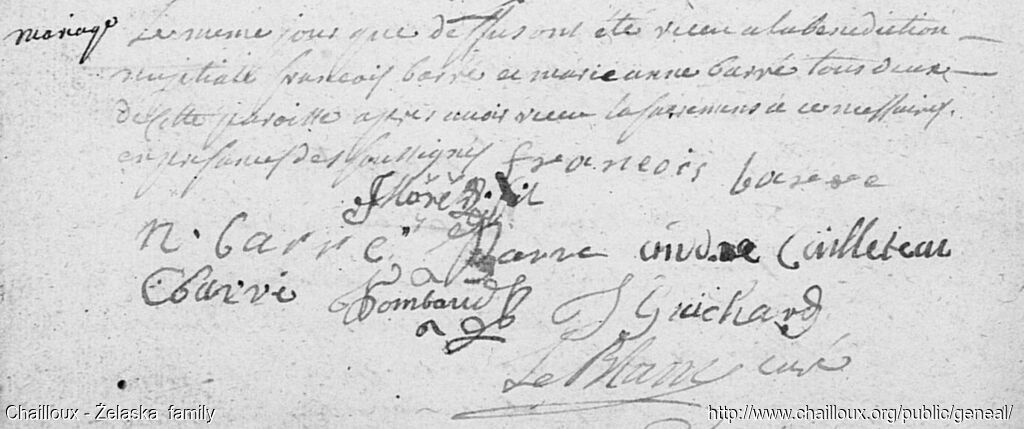 mariage Le meme jour que dessus ont été recu a la benediction
nuptiale francois barré et marie anne barré tous deux
de cette paroisse apres avoir recu les sacremens a ce necessaires.
en presence des soussignes francois barre
n. barré Pierre andre Cailleteau
C barré Bombaud J Guichard
Le Blanc curé
Chailloux - Żelaska family
http://www.chailloux.org/public/geneal/